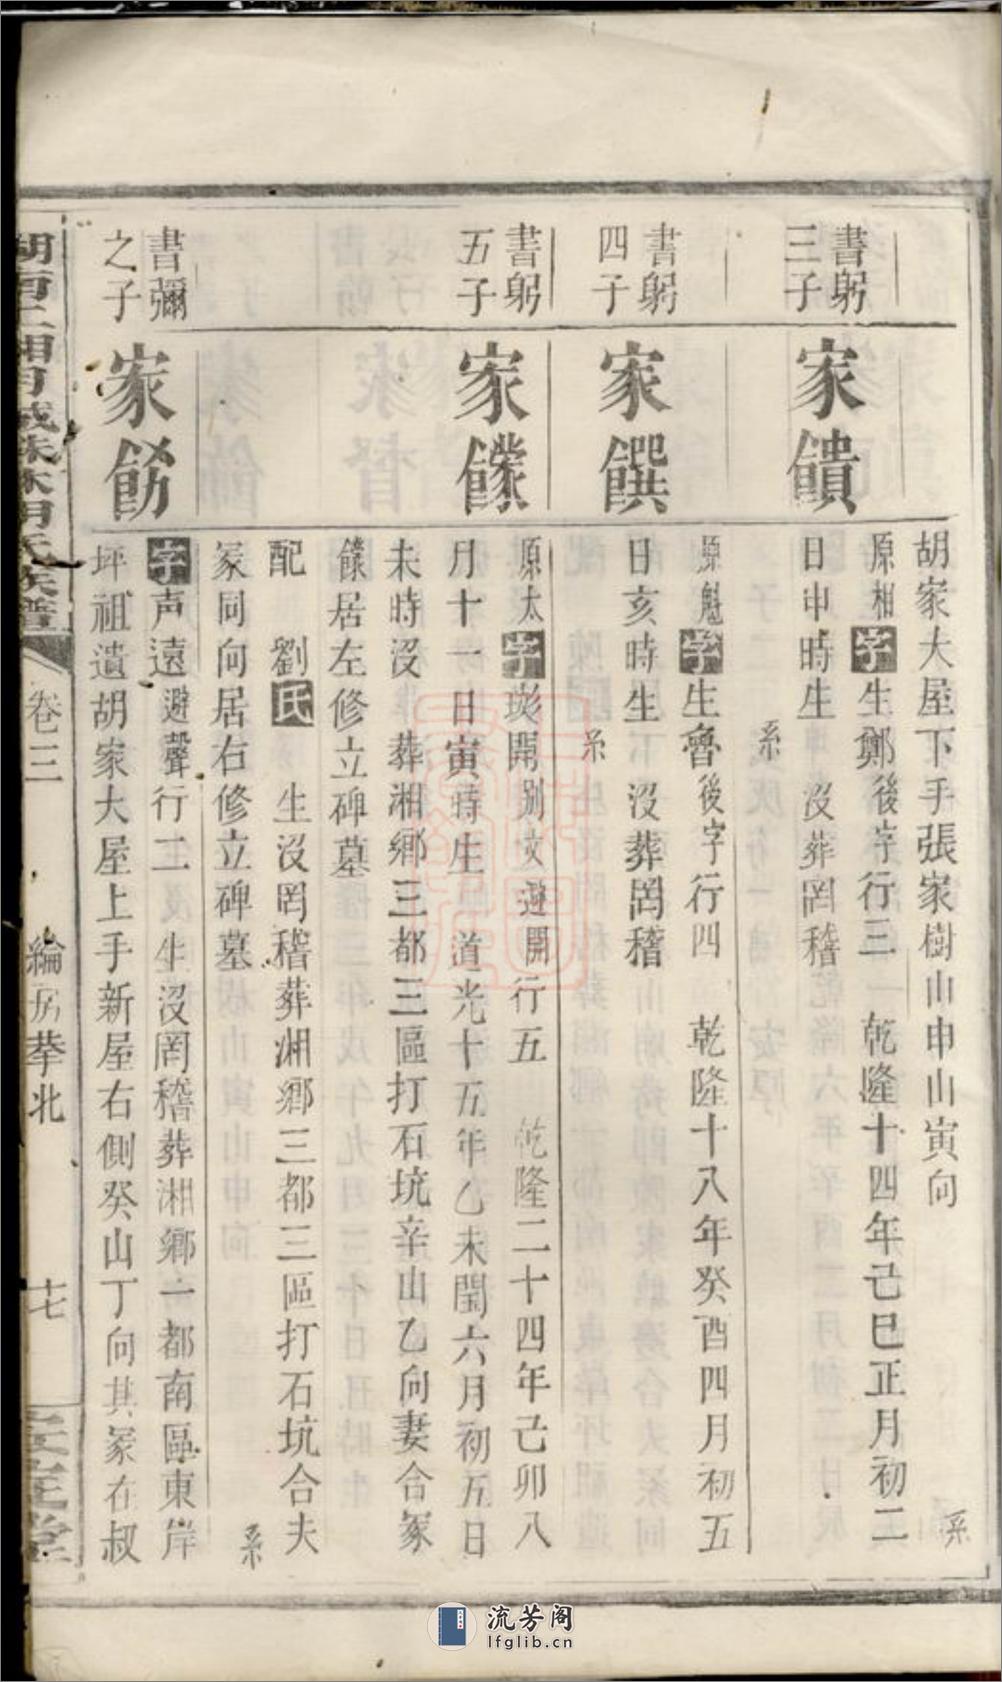 胡家大屋下手張家樹山申山寅向
系
書躬
三子
家饋
原相字生鄭後字行三　乾隆十四年己巳正月初二
日申時生　沒葬罔稽
系
書躬
四子
家饌
原魁字生魯後字行四　乾隆十八年癸酉四月初五
日亥時生　沒葬罔稽
系
書躬
五子
家饛
原太字琰開別文避開行五　乾隆二十四年己卯八
月十一日寅時生　道光十五年乙未閏六月初五日
未時沒　葬湘鄉三都三區打石坑辛山乙向妻合冢
饛居左修立碑墓
配　劉氏　生沒罔稽葬湘鄉三都三區打石坑合夫
冢同向居右修立碑墓
系
書彌
之子
家餝
字声遠避聲行二　生沒罔稽葬湘鄉一都南區東岸
坪祖遺胡家大屋上手新屋右側癸山丁向其冢在叔
胡氏族譜
卷三
綸房拲北
十七
安定堂
流芳阁
lfglib.cn